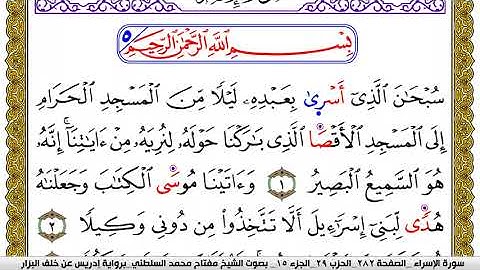 بِسْمِ اللَّهِ الرَّحْمَٰنِ الرَّحِيمِ ٥
سُبْحَٰنَ الَّذِىٓ أَسْرَىٰ بِعَبْدِهِۦ لَيْلًا مِّنَ الْمَسْجِدِ الْحَرَامِ
إِلَى الْمَسْجِدِ الْأَقْصَا الَّذِى بَٰرَكْنَا حَوْلَهُۥ لِنُرِيَهُۥ مِنْ ءَايَٰتِنَآ إِنَّهُۥ
هُوَ السَّمِيعُ الْبَصِيرُ ١ وَءَاتَيْنَا مُوسَى الْكِتَٰبَ وَجَعَلْنَٰهُ
هُدًى لِّبَنِىٓ إِسْرَٰٓءِيلَ أَلَّا تَتَّخِذُوا۟ مِن دُونِى وَكِيلًا ٢
سورة الإسراء _الصفحة ٢٨٢_ الحزب ٢٩_ الجزء ١٥_ بصوت الشيخ مفتاح محمد السلطني_برواية إدريس عن خلف البزار